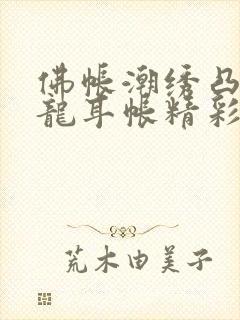 佛帐潮绣凸
龍耳帐精彩
荒木由美子